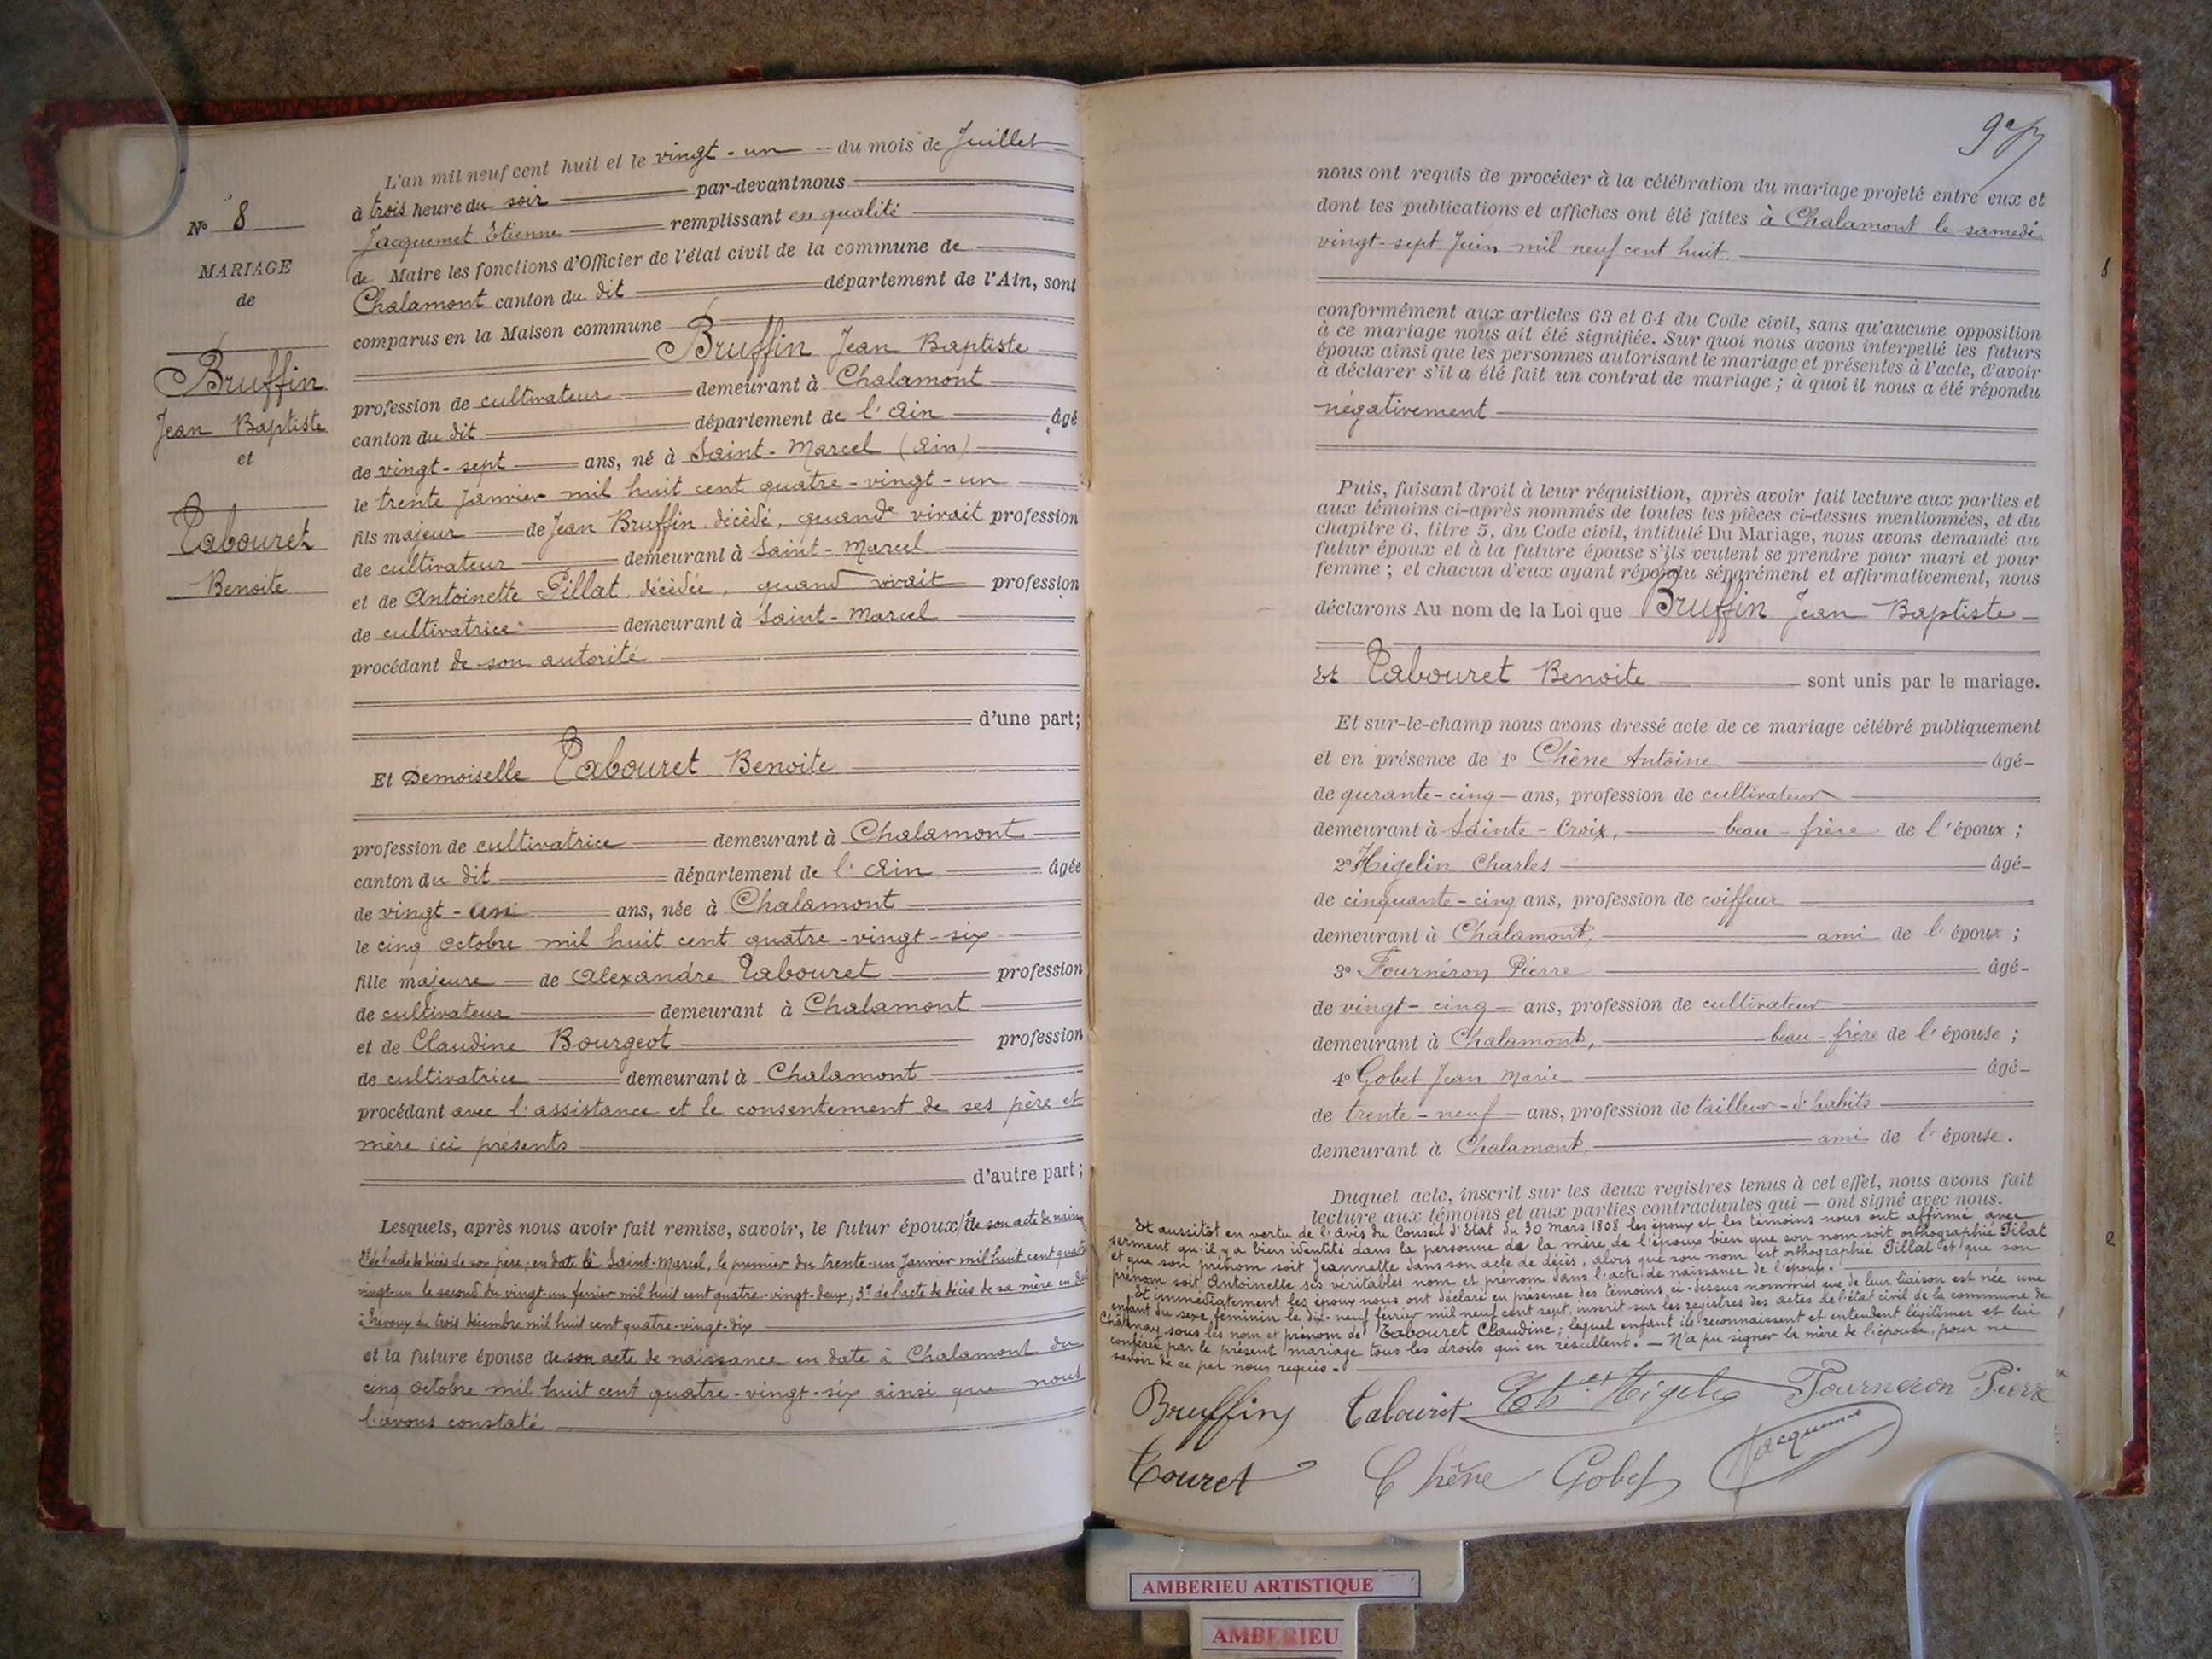 N° 8
MARIAGE
de
Bruffin
Jean Baptiste
et
Tabouret
Benoite
L'an mil neuf cent huit et le vingt-un du mois de Juillet
à trois heure du soir par-devant nous
Jacquemet Etienne remplissant en qualité
de Maire les fonctions d'Officier de l'état civil de la commune de
Chalamont canton du dit département de l'Ain, sont
comparus en la Maison commune
Bruffin Jean Baptiste
profession de cultivateur demeurant à Chalamont
canton du dit département de l'Ain âgé
de vingt-sept ans, né à Saint-Marcel (Ain)
le trente Janvier mil huit cent quatre-vingt-un
fils majeur de Jean Bruffin décèdé, quand vivait profession
de cultivateur demeurant à Saint-Marcel
et de Antoinette Pillat, décèdée, quand vivait profession
de cultivatrice demeurant à Saint-Marcel
procédant de son autorité
d'une part;
Et Demoiselle Tabouret Benoite
profession de cultivatrice demeurant à Chalamont
canton du dit département de l'Ain âgée
de vingt-un ans, née à Chalamont
le cinq octobre mil huit cent quatre-vingt-six
fille majeure de Alexandre Tabouret profession
de cultivateur demeurant à Chalamont
et de Claudine Bourgeot profession
de cultivatrice demeurant à Chalamont
procédant avec l'assistance et le consentement de ses père et
mère ici présents
d'autre part;
Lesquels, après nous avoir fait remise, savoir, le futur époux 1° de son acte de naiss
2° de l'acte de décès de son père; en date à Saint-Marcel, le premier du trente-un Janvier mil huit cent quatre
vingt-un le second du vingt-un fevrier mil huit cent quatre-vingt-deux, 3° de l'acte de décès de sa mère en date
à Trévoux du trois décembre mil huit cent quatre-vingt-dix
et la future épouse de son acte de naissance en date à Chalamont du
cinq octobre mil huit cent quatre-vingt-six ainsi que nous
l'avons constaté
nous ont requis de procéder à la célébration du mariage projeté entre eux et
dont les publications et affiches ont été faites à Chalamont le samedi
vingt-sept Juin mil neuf cent huit.
conformément aux articles 63 et 64 du Code civil, sans qu'aucune opposition
à ce mariage nous ait été signifiée. Sur quoi nous avons interpellé les futurs
époux ainsi que les personnes autorisant le mariage et présentes à l'acte, d'avoir
à déclarer s'il a été fait un contrat de mariage; à quoi il nous a été répondu
négativement
Puis, faisant droit à leur réquisition, après avoir fait lecture aux parties et
aux témoins ci-après nommés de toutes les pièces ci-dessus mentionnées, et du
chapitre 6, titre 5, du Code civil, intitulé Du Mariage, nous avons demandé au
futur époux et à la future épouse s'ils veulent se prendre pour mari et pour
femme; et chacun d'eux ayant répondu séparément et affirmativement, nous
déclarons Au nom de la Loi que Bruffin Jean Baptiste
Et Tabouret Benoite sont unis par le mariage.
Et sur-le-champ nous avons dressé acte de ce mariage célébré publiquement
et en présence de 1° Chêne Antoine âgé
de qurante-cinq ans, profession de cultivateur
demeurant à Sainte-Croix, beau-frère de l'époux;
2° Higelin Charles âgé
de cinquante-cinq ans, profession de coiffeur
demeurant à Chalamont, ami de l'époux;
3° Fournéron Pierre âgé
de vingt-cinq ans, profession de cultivateur
demeurant à Chalamont, beau-frère de l'épouse;
4° Gobet Jean Marie âgé
de trente-neuf ans, profession de tailleur-d'habits
demeurant à Chalamont, ami de l'épouse.
Duquel acte, inscrit sur les deux registres tenus à cet effet, nous avons fait
lecture aux témoins et aux parties contractantes qui — ont signé avec nous.
Et aussitôt en vertu de l'avis du Conseil d'Etat du 30 mars 1808 les époux et les témoins nous ont affirmé avec
serment qu'il y a bien identité dans la personne de la mère de l'époux bien que son nom soit orthographié Pilat
et que son prénom soit Jeannette dans son acte de décès, alors que son nom est orthographié Pillat et que son
prénom soit Antoinette ses véritables nom et prénom dans l'acte de naissance de l'époux.
Et immédiatement les époux nous ont déclaré en présence des témoins ci-dessus nommés que de leur liaison est née une
enfant du sexe féminin le dix-neuf février mil neuf cent sept, inscrit sur les registres des actes de l'état civil de la commune de
Charnay sous les nom et prénom de Tabouret Claudine; lequel enfant ils reconnaissent et entendent légitimer et lui
conférer par le présent mariage tous les droits qui en résultent. — N'a pu signer la mère de l'épouse, pour ne
savoir de ce par nous requis.
Bruffin Tabouret Higelin Fourneron Pierre
Touret Chêne Gobet Jacquemet
AMBERIEU ARTISTIQUE
AMBERIEU